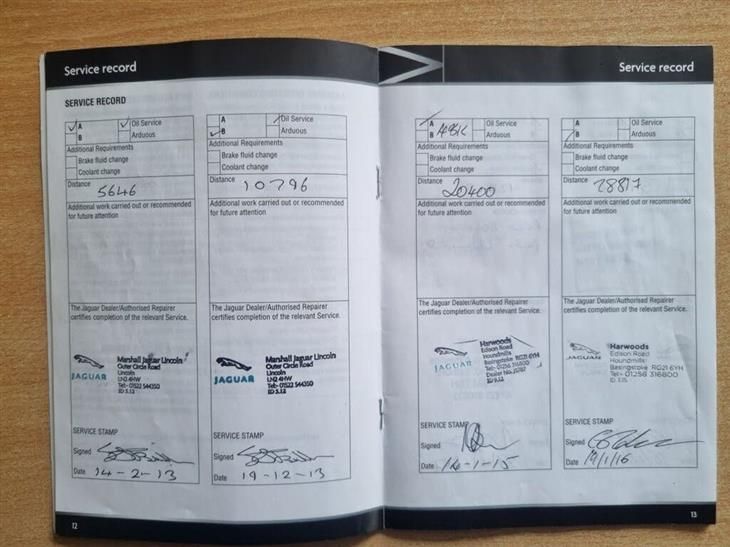 Service record
SERVICE RECORD
A Oil Service
B Arduous
Additional Requirements
Brake fluid change
Coolant change
Distance 5646
Additional work carried out or recommended
for future attention
The Jaguar Dealer/Authorised Repairer
certifies completion of the relevant Service.
JAGUAR
Marshall Jaguar Lincoln
Outer Circle Road
Lincoln
LN2 4HW
Tel:- 01522 544350
ID 5.12
SERVICE STAMP
Signed
Date 14-2-13
A Oil Service
B Arduous
Additional Requirements
Brake fluid change
Coolant change
Distance 10796
Additional work carried out or recommended
for future attention
The Jaguar Dealer/Authorised Repairer
certifies completion of the relevant Service.
JAGUAR
Marshall Jaguar Lincoln
Outer Circle Road
Lincoln
LN2 4HW
Tel:- 01522 544350
ID 5.12
SERVICE STAMP
Signed
Date 19-12-13
12
Service record
A Oil Service
B Arduous
Additional Requirements
Brake fluid change
Coolant change
Distance 20400
Additional work carried out or recommended
for future attention
The Jaguar Dealer/Authorised Repairer
certifies completion of the relevant Service.
JAGUAR
Harwoods
Edison Road
Houndmills
Basingstoke RG21 6YH
Tel:- 01256 316800
Dealer No.
ID 9.12
SERVICE STAMP
Signed
Date 14-1-15
A Oil Service
B Arduous
Additional Requirements
Brake fluid change
Coolant change
Distance 28817
Additional work carried out or recommended
for future attention
The Jaguar Dealer/Authorised Repairer
certifies completion of the relevant Service.
JAGUAR
Harwoods
Edison Road
Houndmills
Basingstoke RG21 6YH
Tel:- 01256 316800
SERVICE STAMP
Signed
Date 19/1/16
13